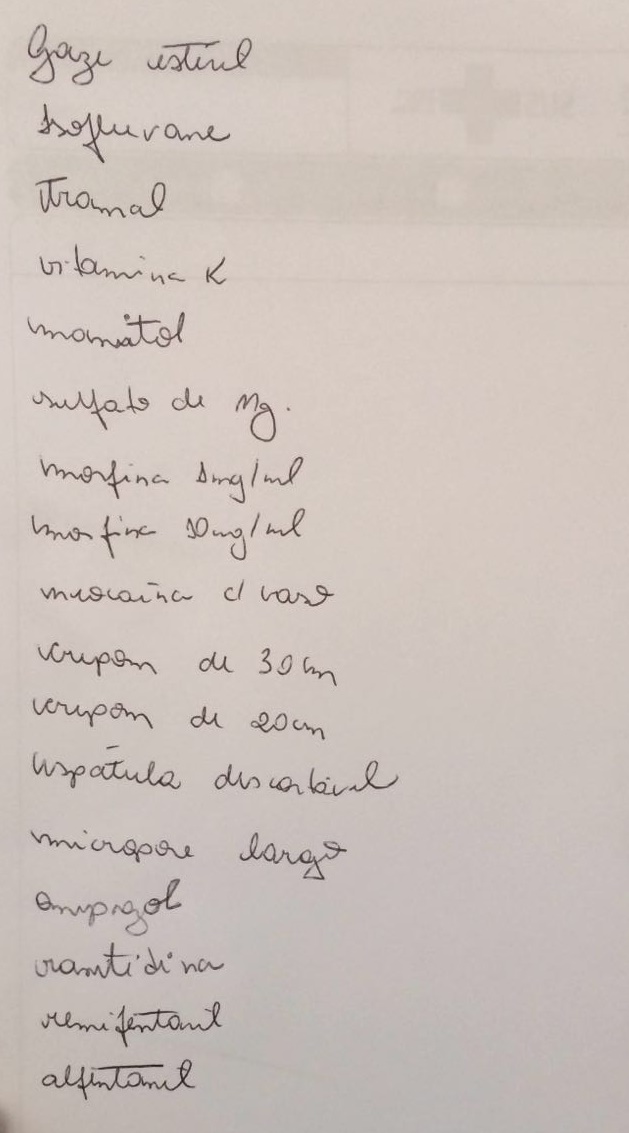 Gaze estéril
Isoflurane
Tramal
vitamina K
manitol
sulfato de Mg.
morfina 1mg/ml
morfina 10mg/ml
neocaína c/ vaso
crepom de 30 cm
crepom de 20 cm
espátula descartável
micropore largo
omeprazol
ranitidina
remifentanil
alfentanil